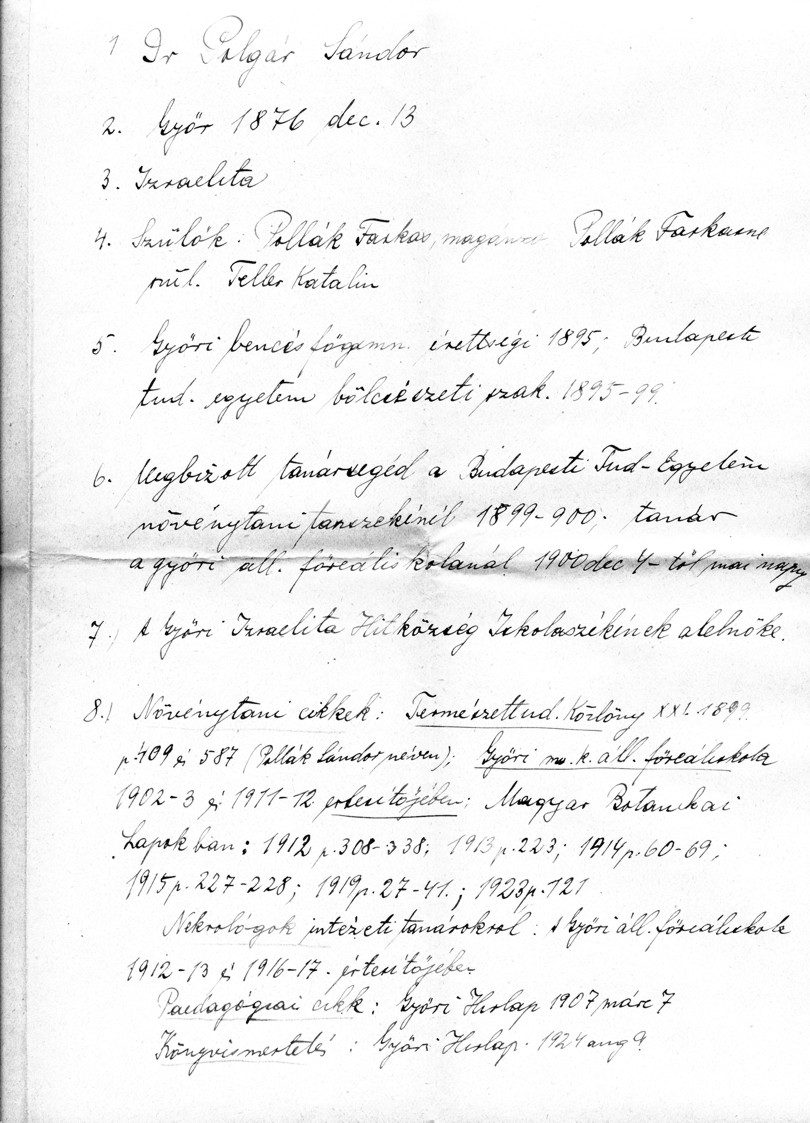 1 Dr Polgár Sándor
2. Győr 1876 dec. 13
3. Izraelita
4. Szülők: Pollák Farkas, magánzó Pollák Farkasné
szül. Teller Katalin
5. Győri bencés főgimn. érettségi 1895; Budapesti
tud. egyetem bölcsészeti szak. 1895-99.
6. Megbízott tanársegéd a Budapesti Tud-Egyetem
növénytani tanszékénél 1899-900; tanár
a győri áll. főreáliskolánál 1900 dec 4-től mai napig
7.) A Győri Izraelita Hitközség Iskolaszékének alelnöke.
8.) Növénytani cikkek: Természettud. Közlöny XXI. 1899.
p. 409 és 587 (Pollák Sándor néven); Győri m. k. áll. főreáliskola
1902-3 és 1911-12 értesítőjében; Magyar Botanikai
Lapokban: 1912 p. 308-338; 1913 p. 223; 1914 p. 60-69;
1915 p. 227-228; 1919 p. 27-41.; 1923 p. 121
Nekrológok intézeti tanárokról: A Győri áll. főreáliskola
1912-13 és 1916-17. értesítőjében
Paedagógiai cikk: Győri Hirlap 1907 márc 7
Könyvismertetés: Győri Hirlap. 1924 aug 9.